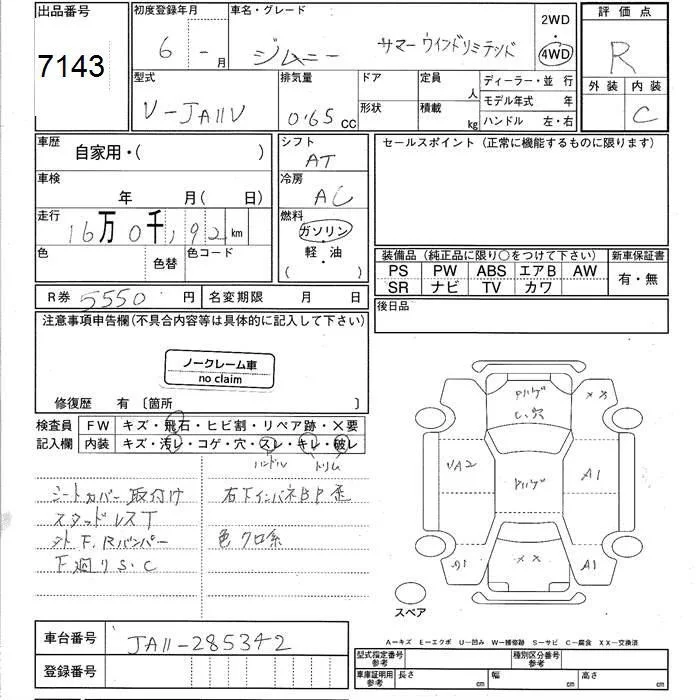 出品番号
7143
初度登録年月
6 - 月
車名・グレード
ジムニー サマーウインドリミテッド
2WD
・
4WD
評価点
R
外装 内装
C
型式
V-JA11V
排気量
0.65 CC
ドア
形状
定員
人
積載
kg
ディーラー・並 行
モデル年式 年
ハンドル 左・右
車歴
自家用・( )
車検
年 月( 日)
走行
16万0千,92 km
色
色替
色コード
シフト
AT
冷房
AC
燃料
ガソリン
軽・油
( )
セールスポイント (正常に機能するものに限ります)
装備品 (純正品に限り○をつけて下さい)
PS PW ABS エアB AW
SR ナビ TV カワ
新車保証書
有・無
R券 5550 円
名変期限 月 日
後日品
注意事項申告欄(不具合内容等は具体的に記入して下さい)
ノークレーム車
no claim
修復歴 有 〔箇所 〕
検査員
記入欄
FW キズ・飛石・ヒビ割・リペア跡・×要
内装 キズ・汚レ・コゲ・穴・スレ・キレ・破レ
ハンドル トリム
シートカバー取付け
スタッドレスT
外F.Rバンパー
下廻りS.C
右下インパネBP歪
色クロ系
Pハゲ
しい穴
××
UA2
Pハゲ
A1
××
A1
スペア
A-キズ E-エクボ U-凹み W-補修跡 S-サビ C-腐食 XX-交換済
車台番号
JA11-285342
登録番号
型式指定番号
参考
種別区分番号
参考
車庫証明用
参考
長さ cm
幅 cm
高さ cm